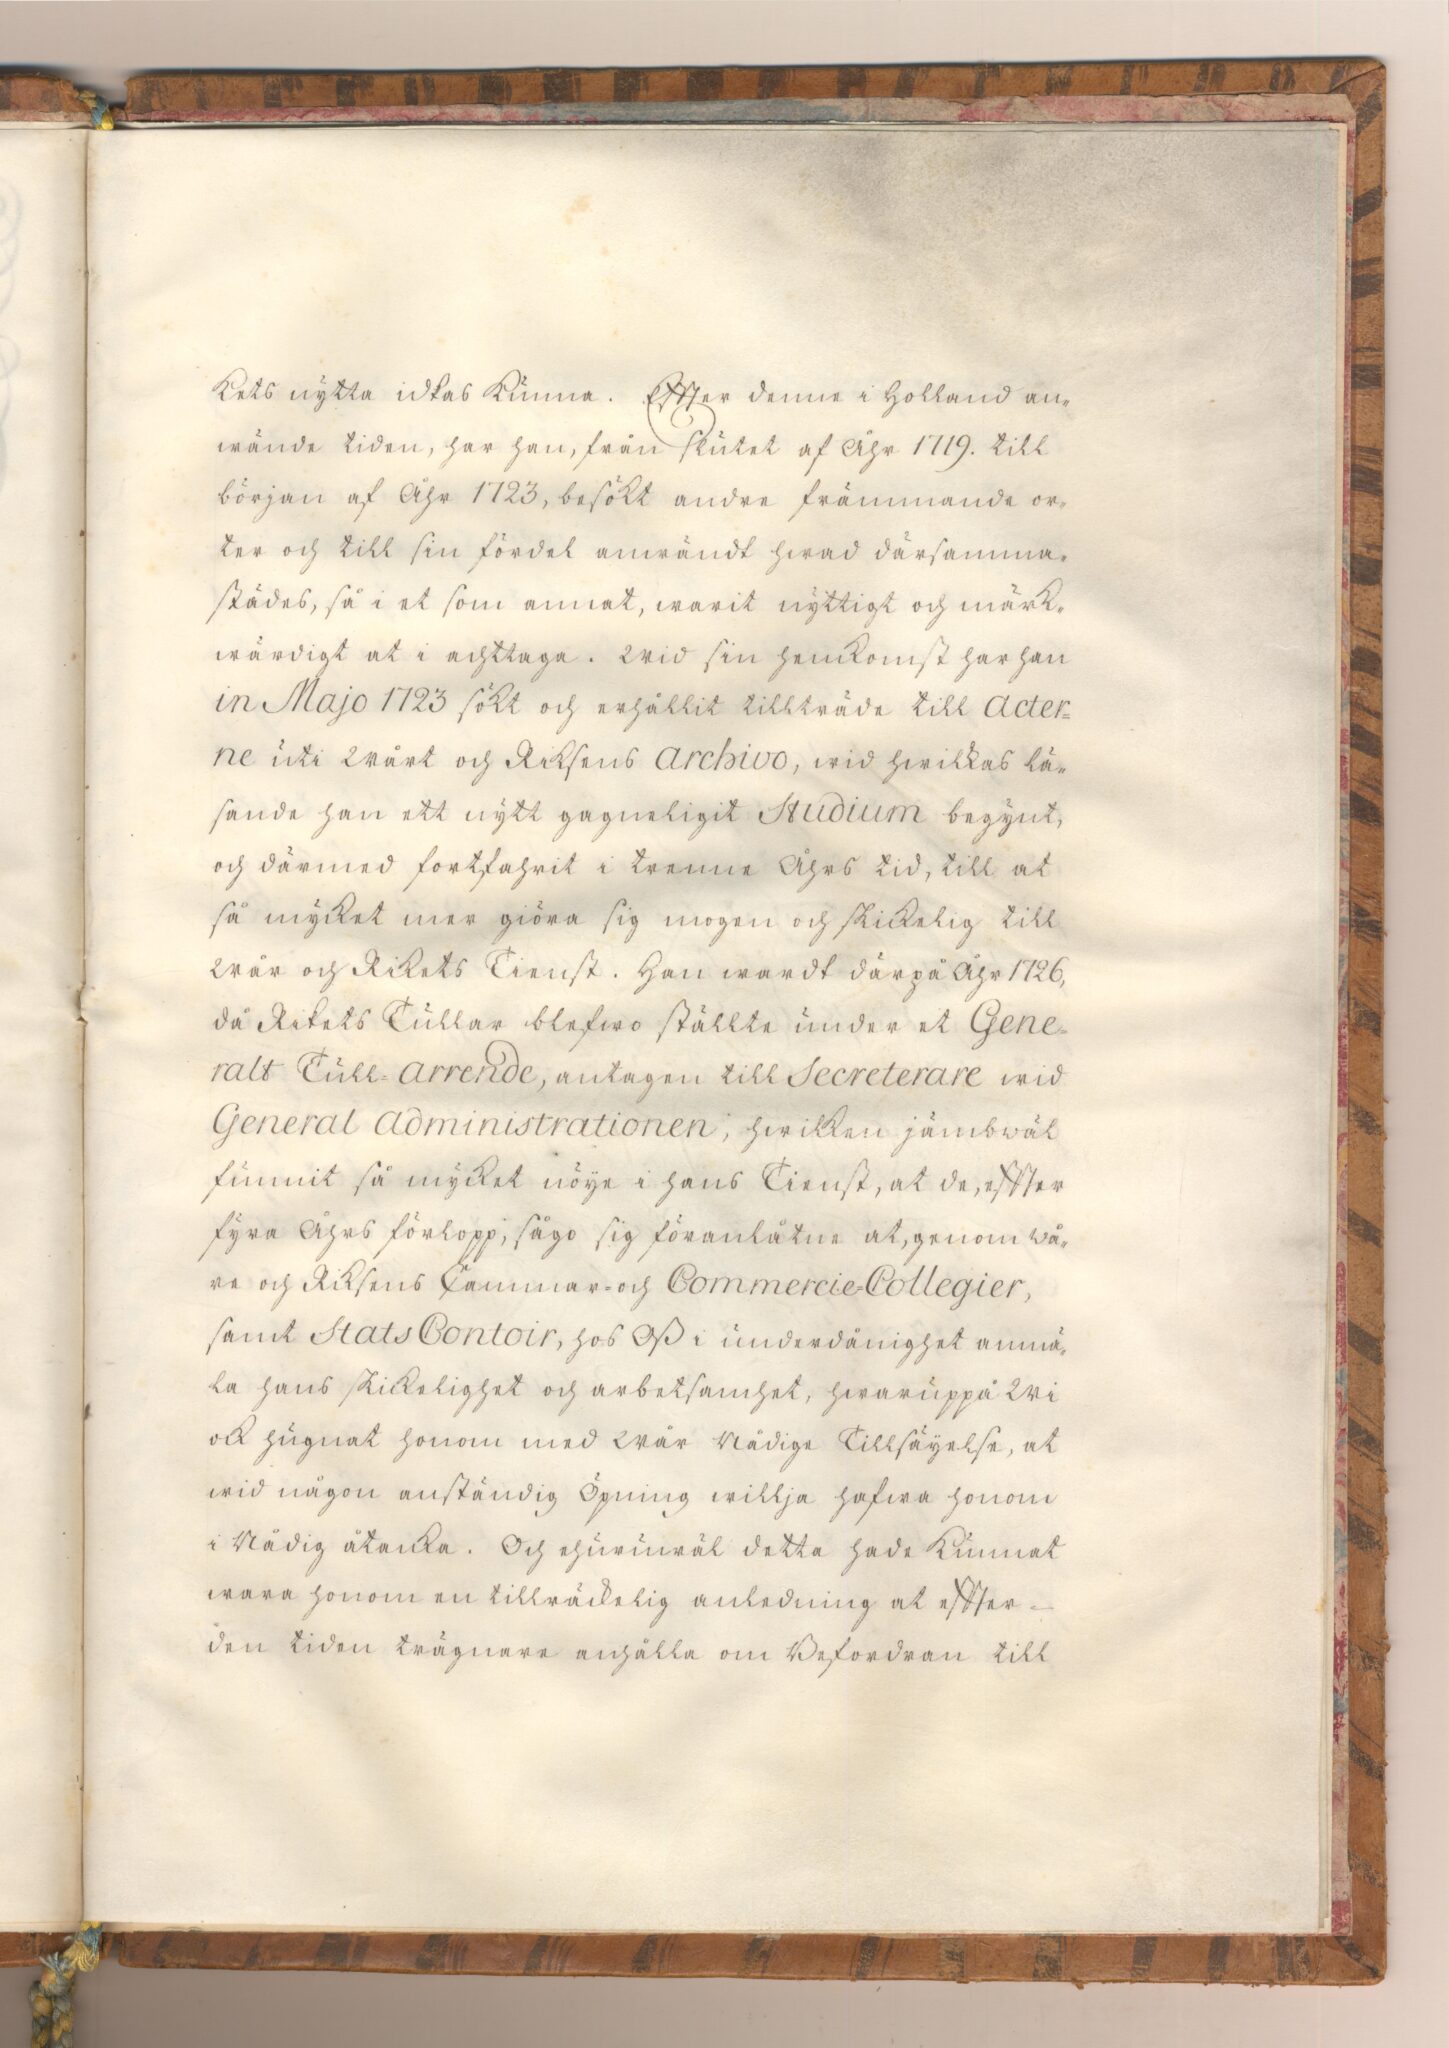 kets nytta idkas kunna. Effter denne i Holland an-
wände tiden, har han, från slutet af Åhr 1719. till
början af Åhr 1723, besökt andre främmande or-
ter och till sin fördel anwändt hwad därsamma-
städes, så i et som annat, warit nyttigt och märk-
wärdigt at i achttaga. Wid sin hemkomst har han
in Majo 1723 sökt och erhållit tillträde till Acter-
ne uti Wårt och Riksens Archivo, wid hwilkas lä-
sande han ett nytt gagneligit Studium begynt,
och därmed fortfahrit i trenne Åhrs tid, till at
så mycket mer giöra sig mogen och skickelig till
Wår och Rikets Tienst. Han wardt därpå Åhr 1726,
då Rikets Tullar blefwo ställte under et Gene-
ralt Tull-Arrende, antagen till Secreterare wid
General Administrationen, hwilken jämbwäl
funnit så mycket nöye i hans Tienst, at de, effter
fyra Åhrs förlopp, sågo sig föranlåtne at, genom wå-
re och Riksens Cammar- och Commercie-Collegier,
samt Stats Contoir, hos Oß i underdånighet anmä-
la hans skickelighet och arbetsamhet, hwaruppå Wi
ock hugnat honom med Wår Nådige Tillsäyelse, at
wid någon anständig Öpning willja hafwa honom
i Nådig åtancka. Och ehuruwäl detta hade kunnat
wara honom en tillräckelig anledning at effter-
den tiden trägnare anhålla om Befordran till